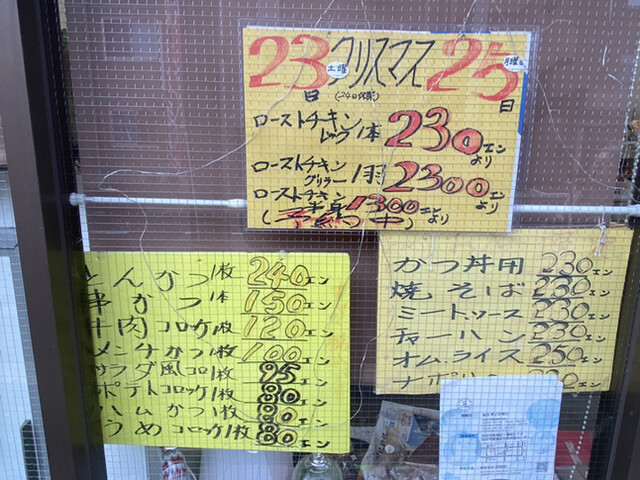 23 クリスマス 25
土曜 月曜
日 (24日休業) 日
ローストチキン
レッグ 1本 230エンより
ローストチキン
グリラー 1羽 2300エンより
ローストチキン
半身 1300エンより
とんかつ1枚 240エン
串かつ1本 150エン
牛肉コロッケ1枚 120エン
メンチかつ1枚 100エン
サラダ風コロ1 95エン
ポテトコロッケ1枚 80エン
ハムかつ1枚 80エン
うめコロッケ1枚 80エン
かつ丼用 230エン
焼そば 230エン
ミートソース 230エン
チャーハン 230エン
オムライス 250エン
ナポリ